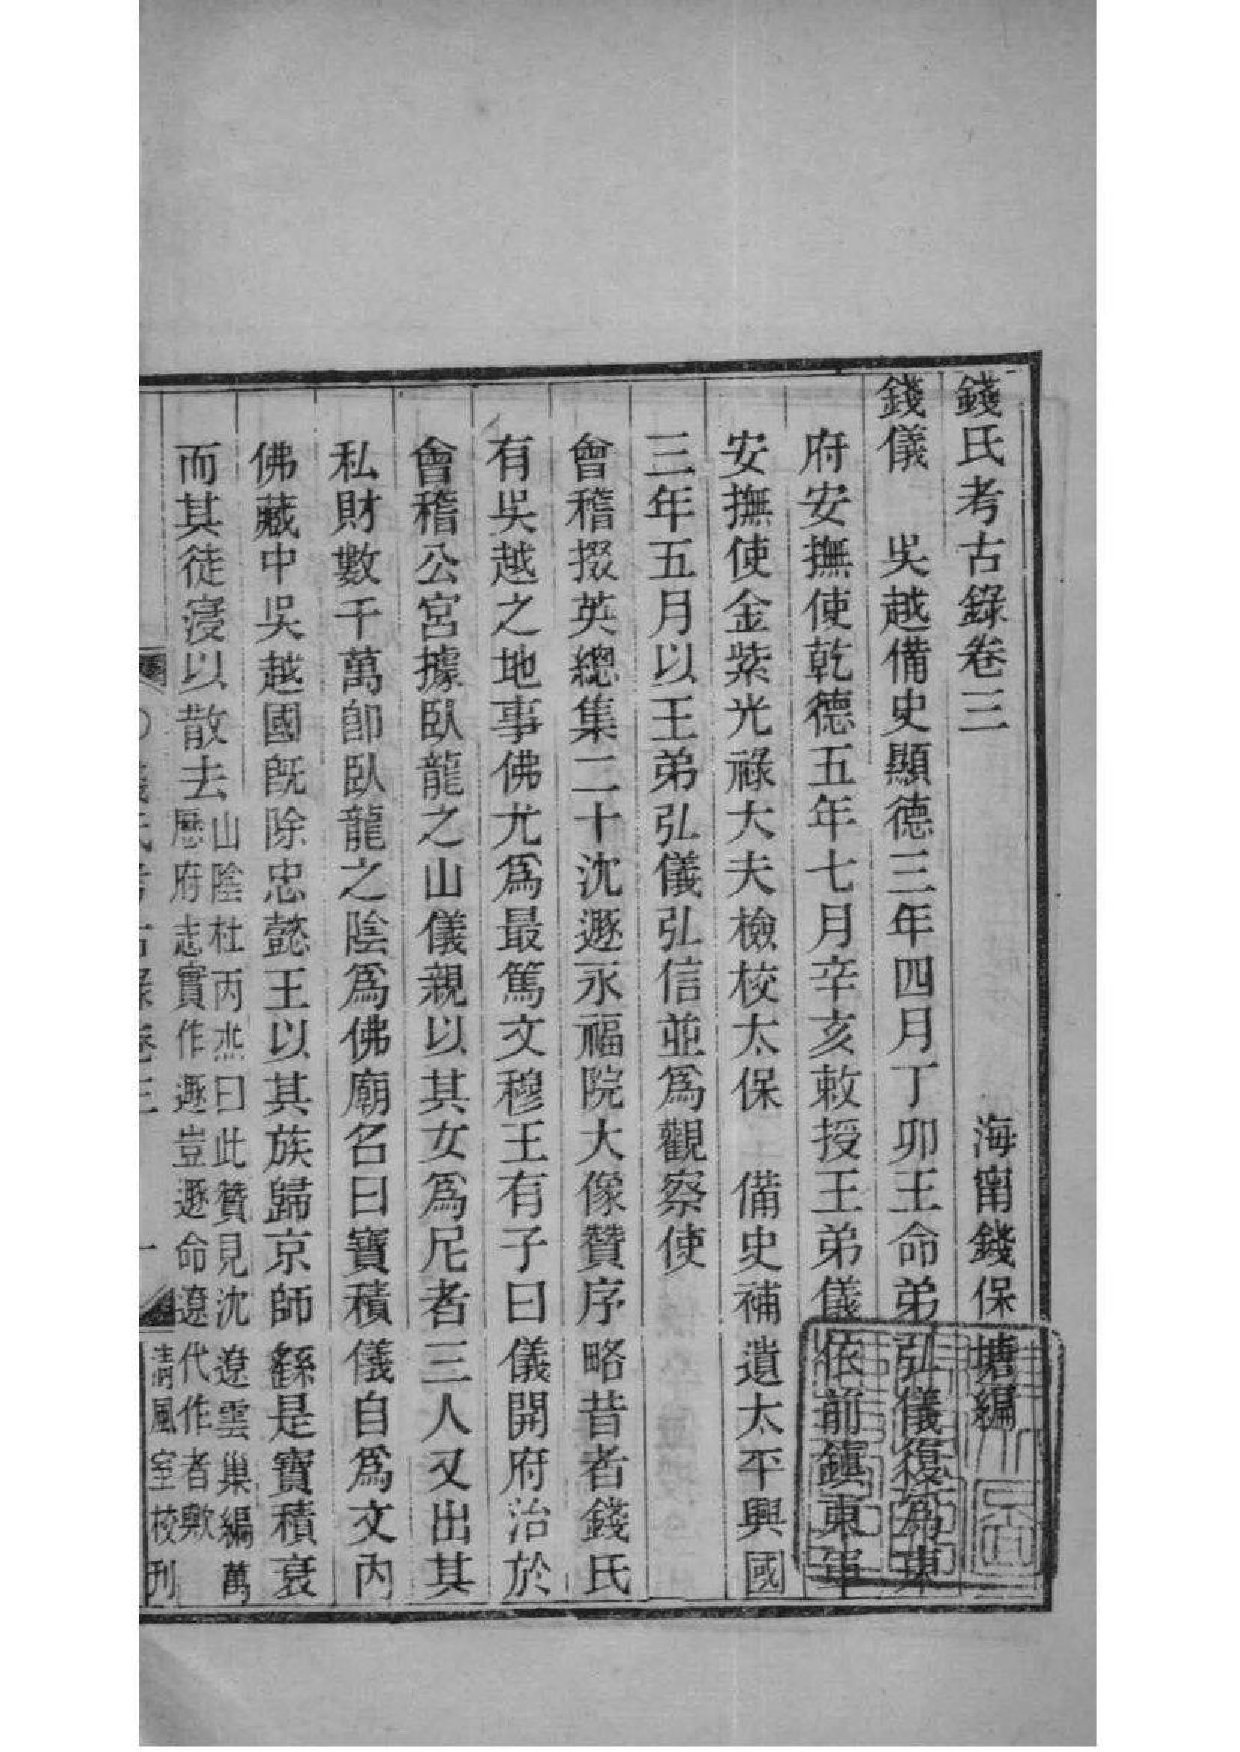 錢氏考古錄卷三
海甯錢保塘編
錢儀　吳越備史顯德三年四月丁卯王命弟弘儀復為東
府安撫使乾德五年七月辛亥敕授王弟儀依前鎮東軍
安撫使金紫光祿大夫檢校太保　備史補遺太平興國
三年五月以王弟弘儀弘信並為觀察使
會稽掇英總集二十沈遼永福院大像贊序略昔者錢氏
有吳越之地事佛尤為最篤文穆王有子曰儀開府治於
會稽公宮據臥龍之山儀親以其女為尼者三人又出其
私財數千萬卽臥龍之陰為佛廟名曰寶積儀自為文內
佛藏中吳越國旣除忠懿王以其族歸京師繇是寶積衰
而其徒寖以散去
山陰杜丙杰曰此贊見沈遼雲巢編萬
厯府志實作遯豈遯命遼代作者歟
錢氏考古錄卷三
一
清風室校刊